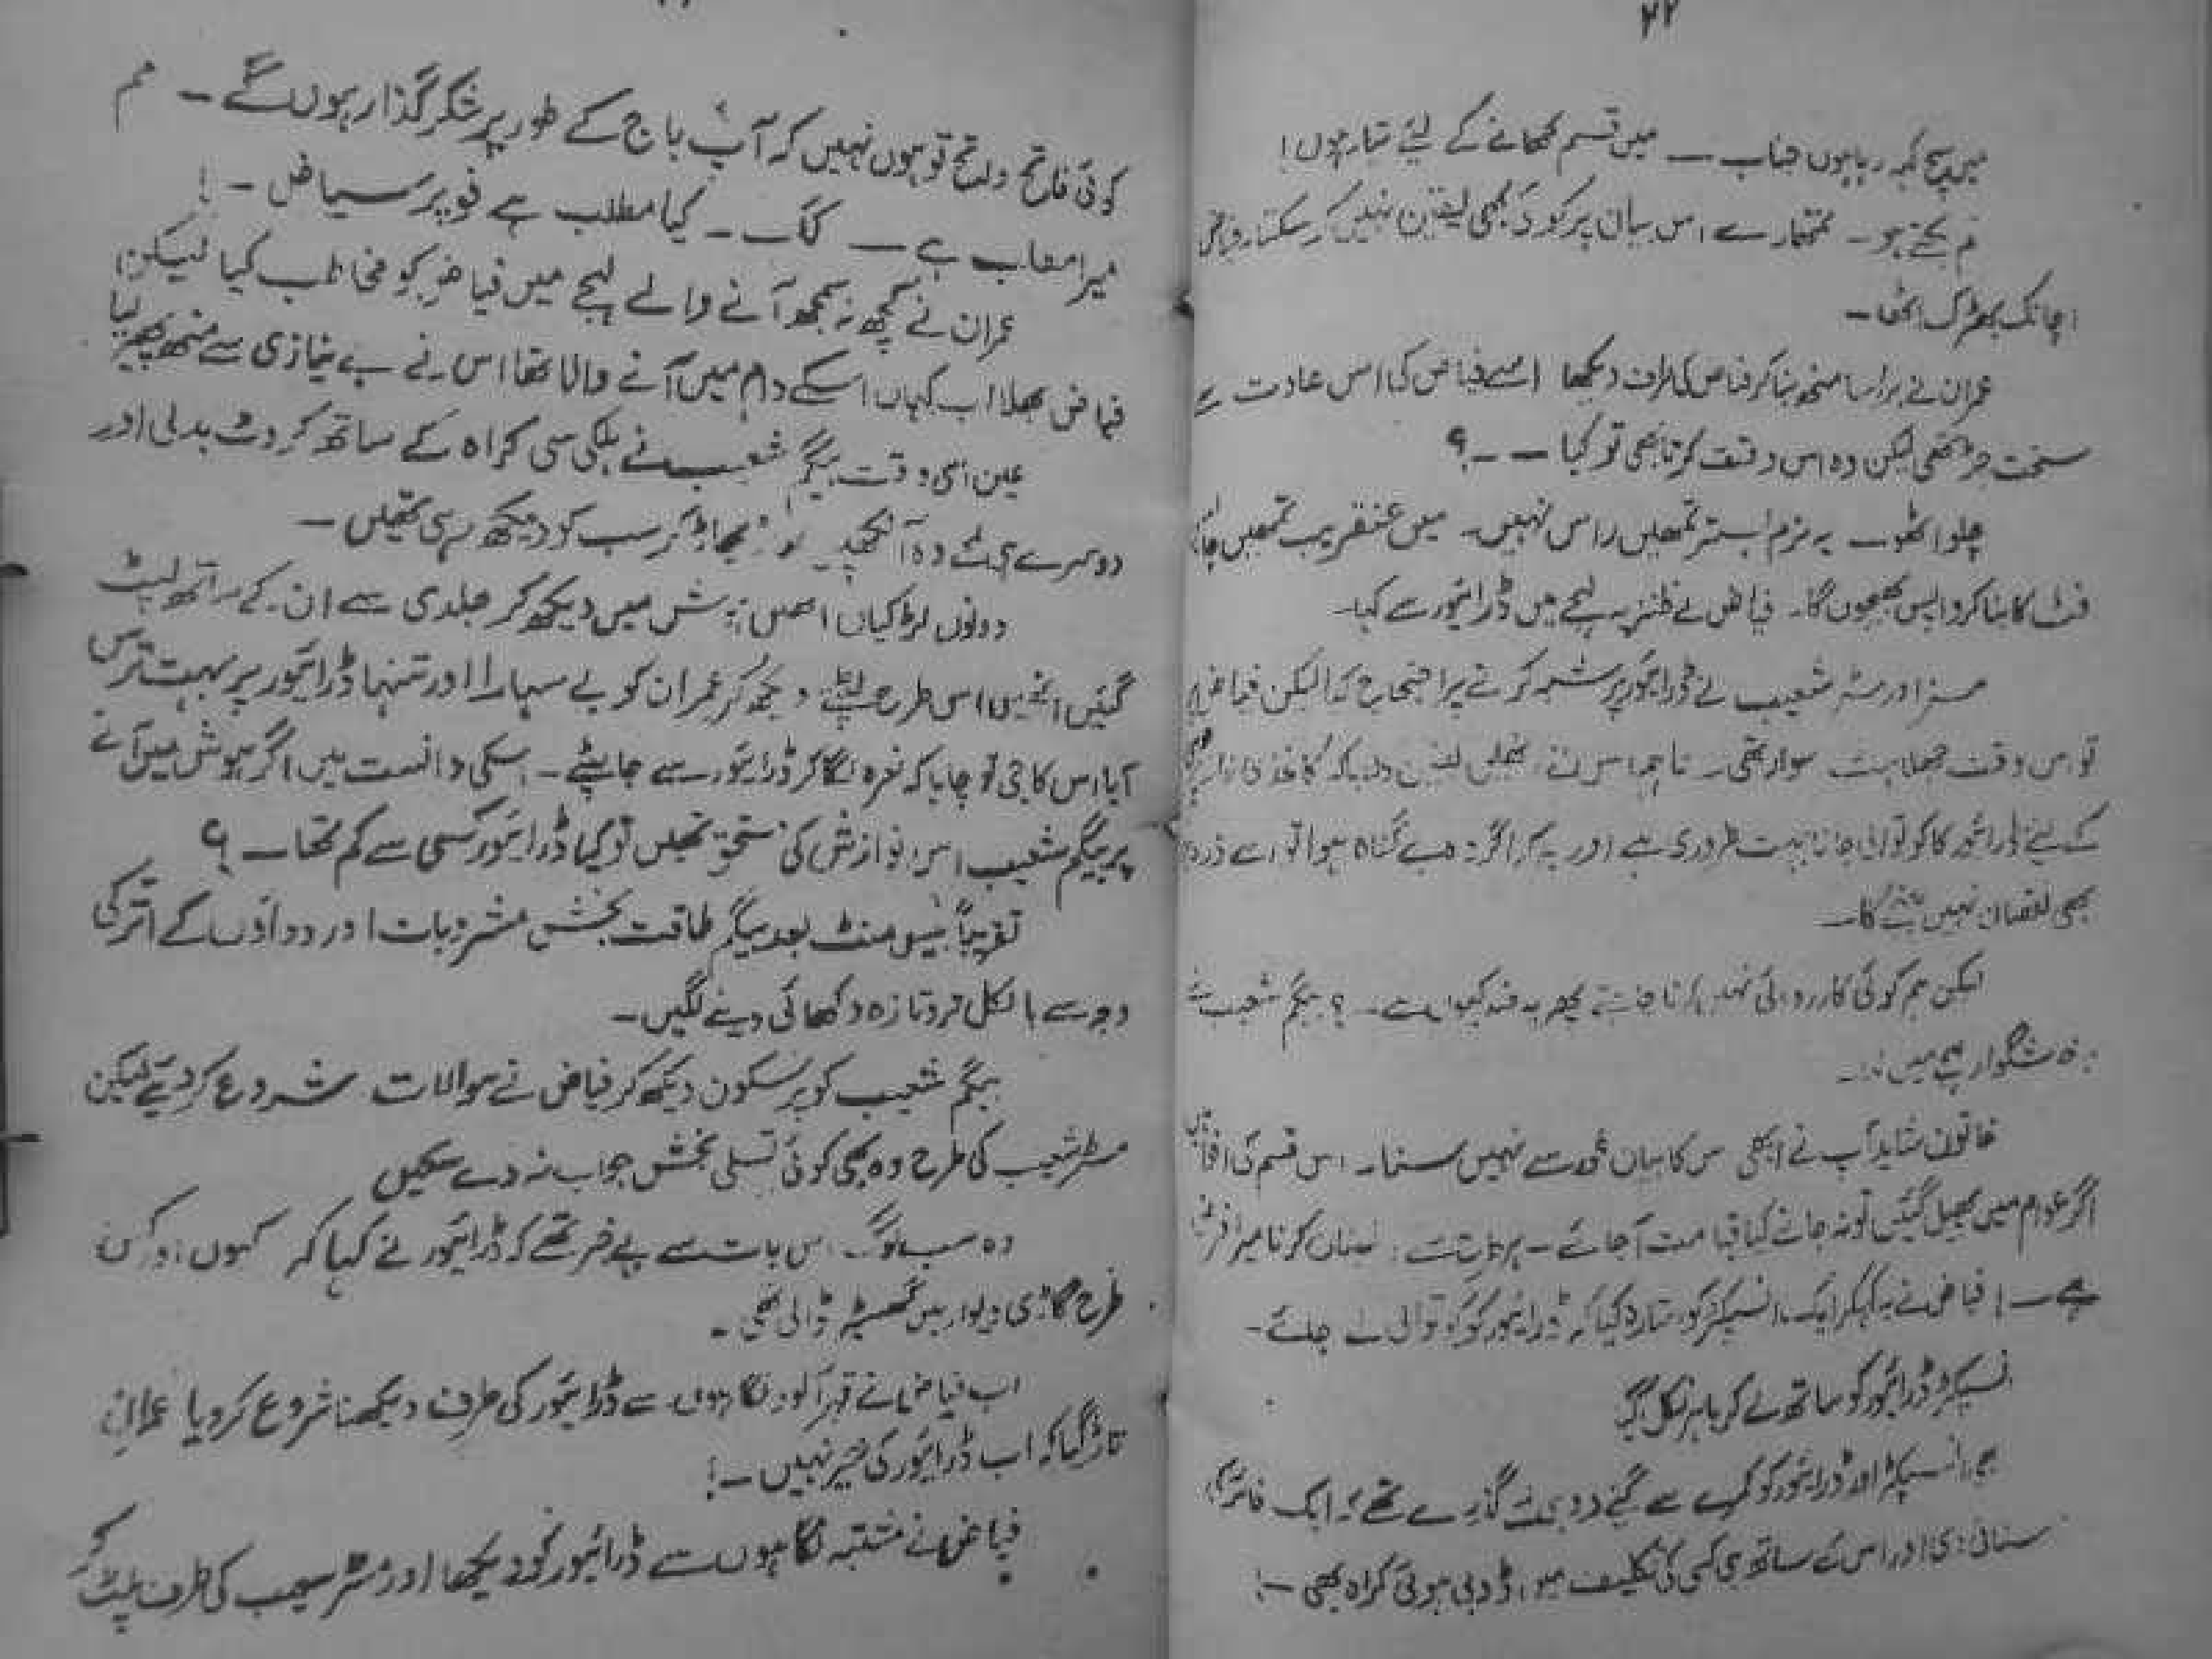 ۲۲
میں سچ کہہ رہا ہوں جناب ــ میں قسم کھانے کے لئے تیار ہوں!
تم بکتے ہو ـ تمھارے اس بیان پر کوئی بھی یقین نہیں کر سکتا ـ فیاض
اچانک بھڑک اٹھا ـ
عمران نے برا سا منھ بنا کر فیاض کی طرف دیکھا اسے فیاض کی اس عادت سے
سخت چڑ تھی لیکن وہ اس وقت کرتا بھی تو کیا ـ ـ ـ ؟
چلو اٹھو ـ یہ نرم بستر تمھیں راس نہیں ـ میں عنقریب تمھیں
فٹ کا بنا کر واپس بھیجوں گا ـ فیاض نے طنزیہ لہجے میں ڈرائیور سے کہا ـ
مسز اور مسٹر شعیب نے ڈرائیور پر شبہ کرنے پر احتجاج کیا لیکن فیاض پر
تو اس وقت جھلاہٹ سوار تھی ـ تاہم اس نے انھیں یقین دلایا کہ
کے لئے ڈرائیور کا کوتوالی جانا بہت ضروری ہے اور یہ کہ اگر وہ بے گناہ ہوا تو اسے ذرہ
بھی نقصان نہیں پہنچے گا ـ
لیکن ہم کوئی کارروائی نہیں کرنا چاہتے پھر یہ ضد کیوں ہے ـ ؟ بیگم شعیب نے
لہجے میں
خاتون شاید آپ نے ابھی اس کا بیان غور سے نہیں سنا ـ اس قسم کی افواہیں
اگر عوام میں پھیل گئیں تو نہ جانے کیا قیامت آ جائے ـ کرنا میرا فرض
ہے ـ ! فیاض نے یہ کہکر ایک انسپکٹر کو اشارہ کیا کہ ڈرائیور کو کوتوالی لے چلے ـ
انسپکٹر ڈرائیور کو ساتھ لے کر باہر نکل گیا
انسپکٹر اور ڈرائیور کو کمرے سے گئے دو ہی منٹ گذرے تھے کہ ایک فائر کی آواز
سنائی دی اور اس کے ساتھ ہی کسی کی تکلیف میں ڈوبی ہوئی کراہ بھی ـ !
کوئی فاتح واتح تو ہوں نہیں کہ آپ باج کے طور پر شکر گذار ہوں گے ـ مم
میرا مطلب ہے ــ کک ـ کیا مطلب ہے سوپر فیاض ـ !
عمران نے کچھ نہ سمجھ آنے والے لہجے میں فیاض کو مخاطب کیا لیکن
فیاض بھلا اب کہاں اسکے دام میں آنے والا تھا اس نے بے نیازی سے منھ پھیر لیا
عین اسی وقت بیگم شعیب نے ہلکی سی کراہ کے ساتھ کروٹ بدلی اور
دوسرے ہی لمحے وہ آنکھیں پھاڑ کر سب کو دیکھ رہی تھیں ـ
دونوں لڑکیاں انھیں ہوش میں دیکھ کر جلدی سے ان کے ساتھ لپٹ
گئیں انھیں اس طرح لپٹے دیکھ کر عمران کو بے سہارا اور تنہا ڈرائیور پر بہت ترس
آیا اس کا جی تو چاہا کہ نعرہ لگا کر ڈرائیور سے جا لپٹے ـ اسکی دانست میں اگر ہوش میں آنے
پر بیگم شعیب اس نوازش کی مستحق تھیں تو کیا ڈرائیور کسی سے کم تھا ـ ؟
تقریباً بیس منٹ بعد بیگم طاقت بخش مشروبات اور دواؤں کے اثر کی
وجہ سے بالکل تروتازہ دکھائی دینے لگیں ـ
بیگم شعیب کو پرسکون دیکھ کر فیاض نے سوالات شروع کر دیئے لیکن
مسٹر شعیب کی طرح وہ بھی کوئی تسلی بخش جواب نہ دے سکیں
وہ سب لوگ اس بات سے بے خبر تھے کہ ڈرائیور نے کہا کہ کیوں اور کس
طرح گاڑی دیوار میں گھسیڑ ڈالی تھی ـ
اب فیاض نے قہر آلود نگاہوں سے ڈرائیور کی طرف دیکھنا شروع کر دیا عمران
تاڑ گیا کہ اب ڈرائیور کی خیر نہیں ـ !
فیاض نے مشتبہ نگاہوں سے ڈرائیور کو دیکھا اور مسٹر شعیب کی طرف پلٹ کر